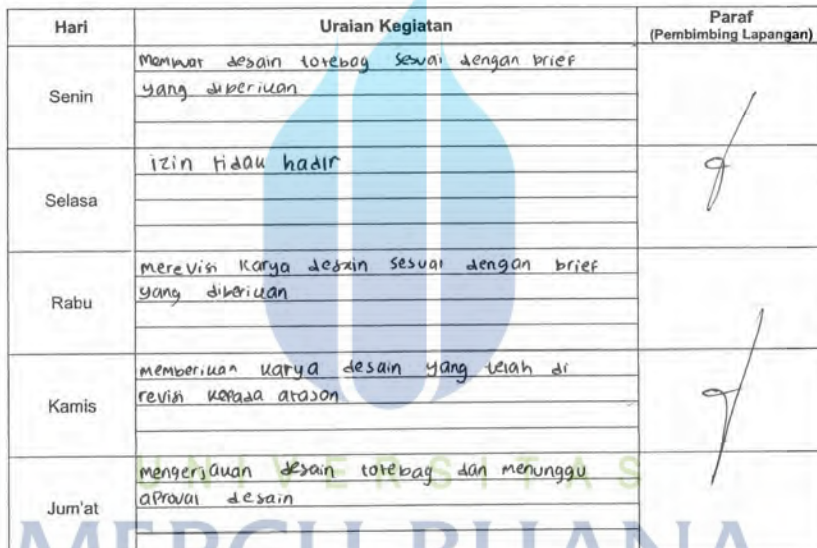 Hari
Uraian Kegiatan
Paraf
(Pembimbing Lapangan)
Senin
Membuat desain totebag sesuai dengan brief
yang diberikan
Selasa
izin tidak hadir
Rabu
merevisi karya desain sesuai dengan brief
yang diberikan
Kamis
memberikan karya desain yang telah di
revisi kepada atasan
Jum'at
mengerjakan desain totebag dan menunggu
aproval desain
UNIVERSITAS
MERCU BUANA